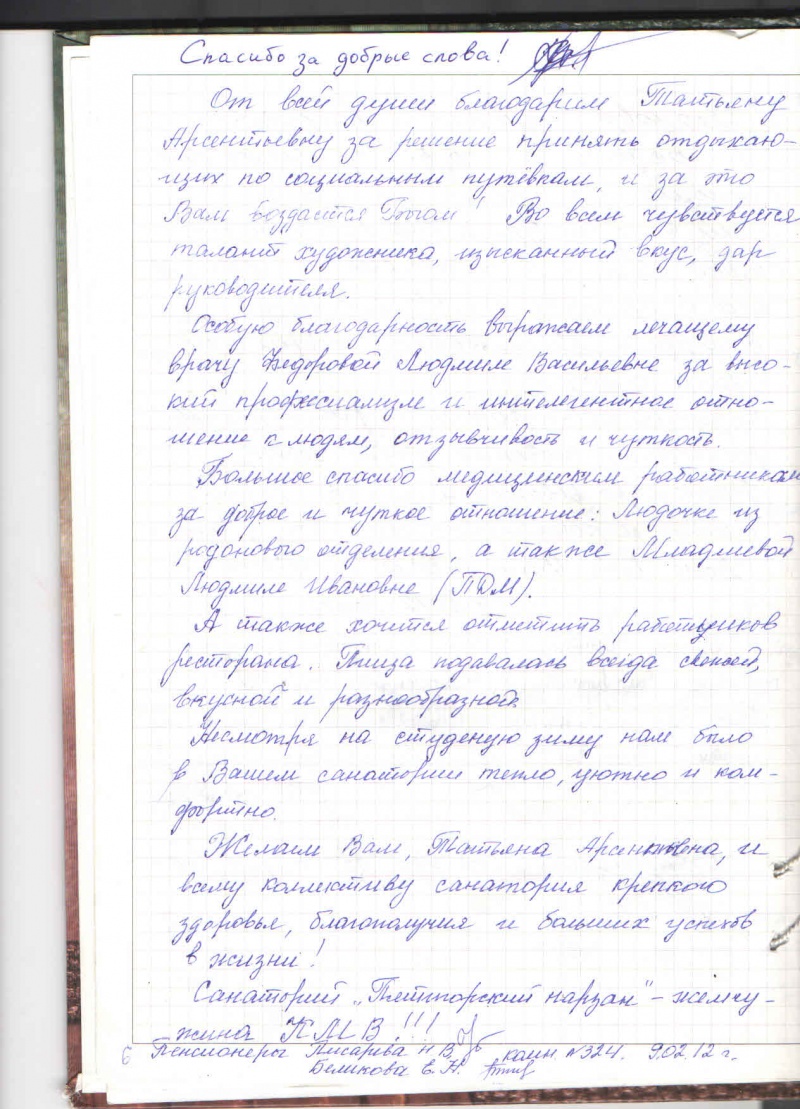 Спасибо за добрые слова!
От всей души благодарим Татьяну
Арсентьевну за решение принять отдыхаю-
щих по социальным путёвкам, и за это
Вам воздастся Богом! Во всем чувствуется
талант художника, изысканный вкус, дар
руководителя.
Особую благодарность выражаем лечащему
врачу Федоровой Людмиле Васильевне за высо-
кий профессиализм и интелегентное отно-
шение к людям, отзывчивость и чуткость.
Большое спасибо медицинским работникам
за доброе и чуткое отношение: Людочке из
родонового отделения, а также
Людмиле Ивановне (ПДМ).
А также хочится отметить работников
ресторана. Пища подавалась всегда свежей,
вкусной и разнообразной.
Несмотря на студеную зиму нам было
в Вашем санатории тепло, уютно и ком-
фортно.
Желаем Вам, Татьяна Арсентьевна, и
всему коллективу санатория крепкого
здоровья, благополучия и больших успехов
в жизни!
Санаторий „Пятигорский нарзан" – жемчу-
жина КМВ!!!
Пенсионеры Писарева Н В комн. №324. 9.02.12 г.
Беликова Е.Н.